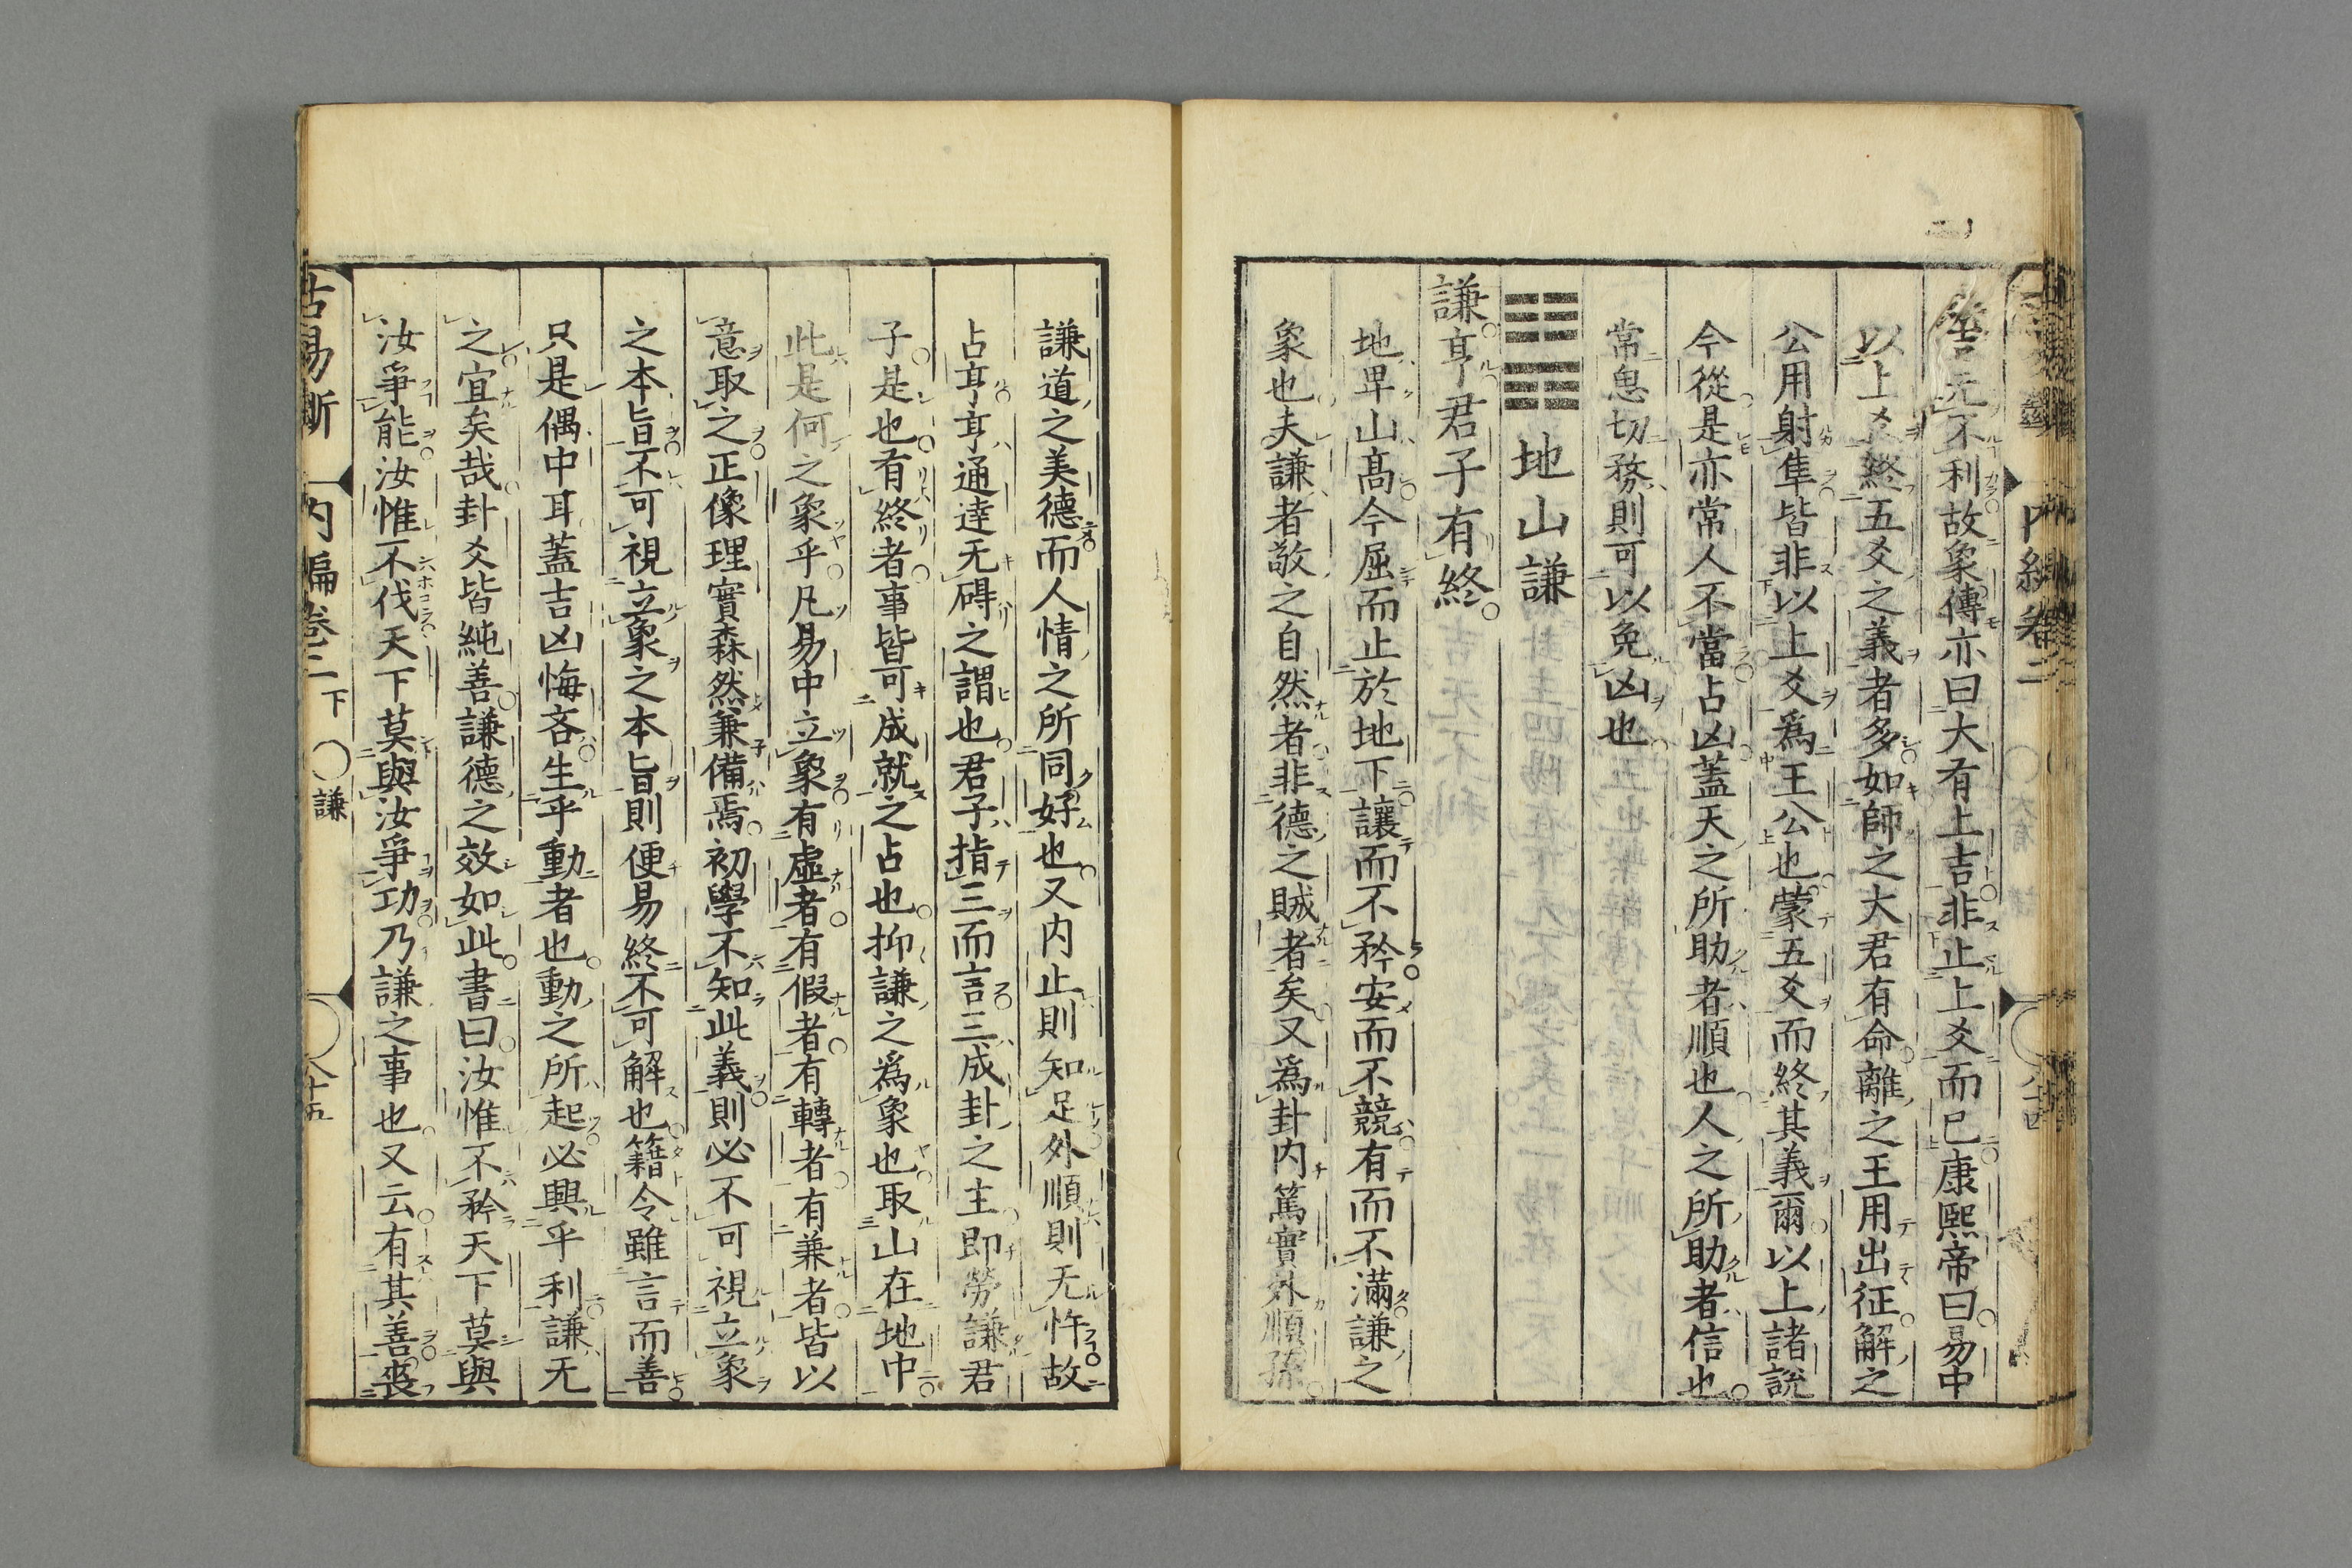 吉元不利故象傳亦曰大有上吉非止上爻而已康熙帝曰易中
以上爻終五爻之義者多如師之大君有命離之王用出征解之
公用射隼皆非以上爻爲王公也蒙五爻而終其義爾以上諸說
今從是亦常人不當占凶蓋天之所助者順也人之所助者信也
常思切務則可以免凶也
地山謙
謙亨君子有終
地卑山高今屈而止於地下讓而不矜安而不競有而不滿謙之
象也夫謙者敬之自然者非德之賊者矣又爲卦内篤實外順
謙道之美德而人情之所同好也又内止則知足外順則无忤故
占亨亨通達无碍之謂也君子指三而言三成卦之主即勞謙君
子是也有終者事皆可成就之占也抑謙之爲象也取山在地中
此是何之象乎凡易中立象有虛者有假者有轉者有兼者皆以
意取之正像理實森然兼備焉初學不知此義則必不可視立象
之本旨不可視立象之本旨則便易終不可解也籍令雖言而善
只是偶中耳蓋吉凶悔吝生乎動者也動之所起必興乎利謙无
之宜矣哉卦爻皆純善謙德之效如此書曰汝惟不矜天下莫與
汝爭能汝惟不伐天下莫與汝爭功乃謙之事也又云有其善喪
古易斷 内編卷二 下 謙 八十五